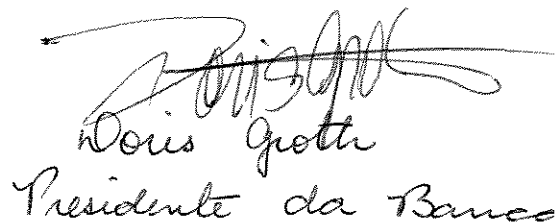 Doris Groth
Presidente da Banca